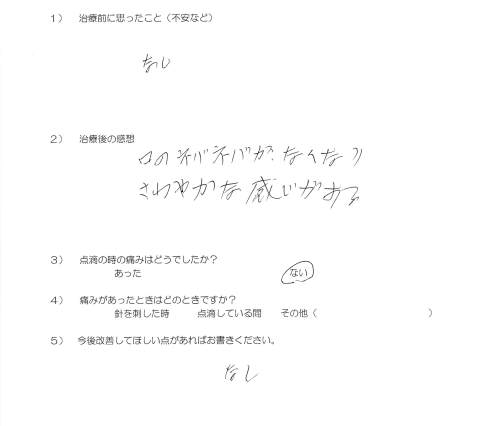 1） 治療前に思ったこと（不安など）
なし
2） 治療後の感想
口のネバネバが、なくなり
さわやかな感じがある
3） 点滴の時の痛みはどうでしたか？
あった ない
4） 痛みがあったときはどのときですか？
針を刺した時 点滴している間 その他（ ）
5） 今後改善してほしい点があればお書きください。
なし